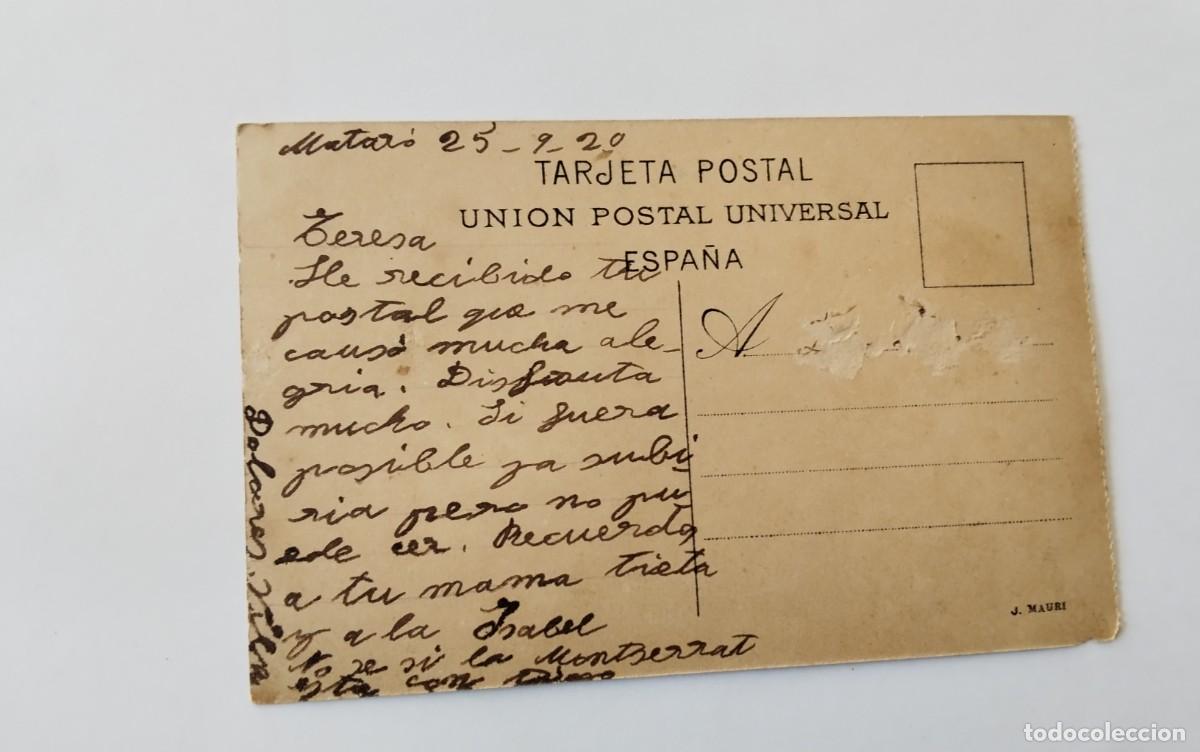 Mataró 25-9-20
TARJETA POSTAL
UNION POSTAL UNIVERSAL
ESPAÑA
Teresa
He recibido tu
postal que me
causó mucha ale-
gria. Disfruuta
mucho. Si fuera
posible ya subi
ria pero no pu
ede cer. Recuerdo
a tu mama tieta
y a la Isabel
No se si la Montserrat
esta con
Dolores Vila
A
J. MAURI
todocoleccion